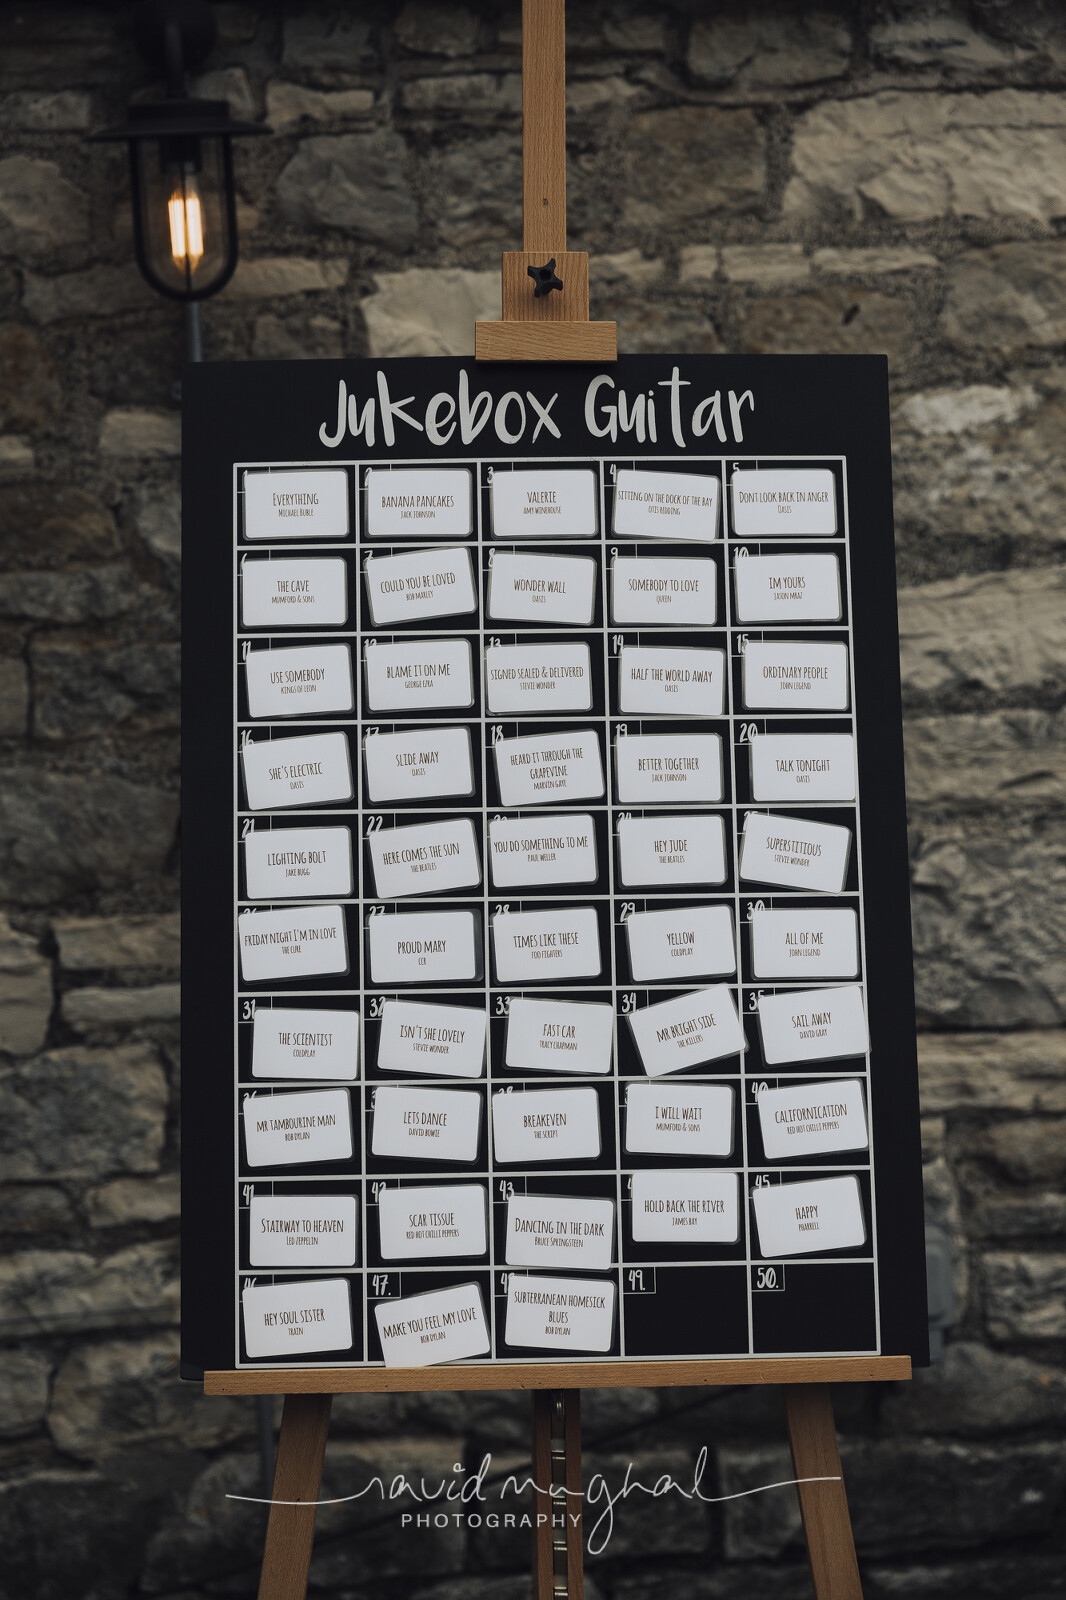 Jukebox Guitar
1
EVERYTHING
MICHAEL BUBLE
2
BANANA PANCAKES
JACK JOHNSON
3
VALERIE
AMY WINEHOUSE
4
SITTING ON THE DOCK OF THE BAY
OTIS REDDING
5
DONT LOOK BACK IN ANGER
OASIS
6
THE CAVE
MUMFORD & SONS
7
COULD YOU BE LOVED
BOB MARLEY
8
WONDER WALL
OASIS
9
SOMEBODY TO LOVE
QUEEN
10
IM YOURS
JASON MRAZ
11
USE SOMEBODY
KINGS OF LEON
12
BLAME IT ON ME
GEORGE EZRA
13
SIGNED SEALED & DELIVERED
STEVIE WONDER
14
HALF THE WORLD AWAY
OASIS
15
ORDINARY PEOPLE
JOHN LEGEND
16
SHE'S ELECTRIC
OASIS
17
SLIDE AWAY
OASIS
18
HEARD IT THROUGH THE
GRAPEVINE
MARVIN GAYE
19
BETTER TOGETHER
JACK JOHNSON
20
TALK TONIGHT
OASIS
21
LIGHTING BOLT
JAKE BUGG
22
HERE COMES THE SUN
THE BEATLES
23
YOU DO SOMETHING TO ME
PAUL WELLER
24
HEY JUDE
THE BEATLES
25
SUPERSTITIOUS
STEVIE WONDER
26
FRIDAY NIGHT I'M IN LOVE
THE CURE
27
PROUD MARY
CCR
28
TIMES LIKE THESE
FOO FIGHTERS
29
YELLOW
COLDPLAY
30
ALL OF ME
JOHN LEGEND
31
THE SCIENTIST
COLDPLAY
32
ISN'T SHE LOVELY
STEVIE WONDER
33
FAST CAR
TRACY CHAPMAN
34
MR BRIGHT SIDE
THE KILLERS
35
SAIL AWAY
DAVID GRAY
36
MR TAMBOURINE MAN
BOB DYLAN
LETS DANCE
DAVID BOWIE
38
BREAKEVEN
THE SCRIPT
I WILL WAIT
MUMFORD & SONS
40
CALIFORNICATION
RED HOT CHILLI PEPPERS
41
STAIRWAY TO HEAVEN
LED ZEPPELIN
42
SCAR TISSUE
RED HOT CHILLI PEPPERS
43
DANCING IN THE DARK
BRUCE SPRINGSTEEN
HOLD BACK THE RIVER
JAMES BAY
45
HAPPY
PHARRELL
46
HEY SOUL SISTER
TRAIN
47.
MAKE YOU FEEL MY LOVE
BOB DYLAN
48
SUBTERRANEAN HOMESICK
BLUES
BOB DYLAN
49.
50.
navid mughal
PHOTOGRAPHY